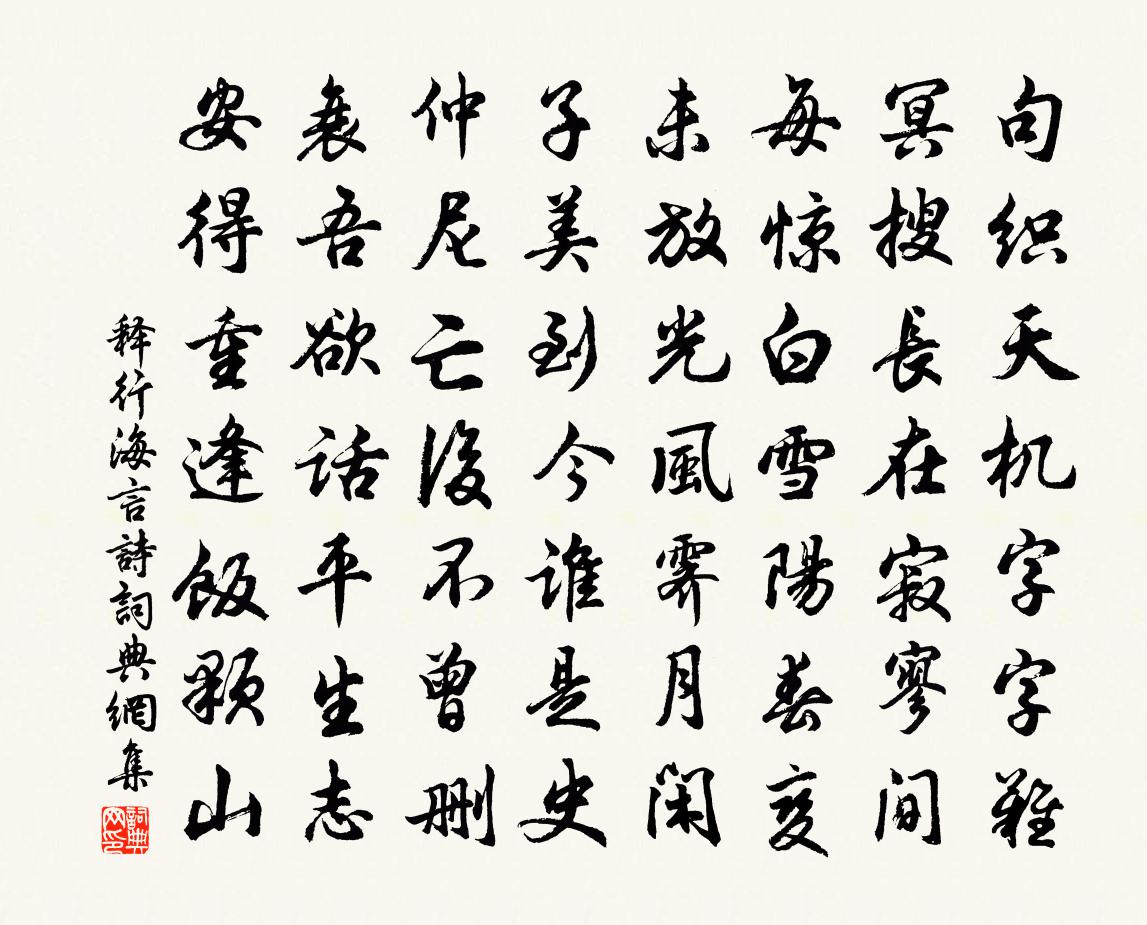 句织天机字字難
冥搜長在寂寥间
每惊白雪陽春变
未放光風霁月闲
子美到今谁是史
仲尼亡後不曾删
衰吾欲话平生志
安得重逢飯顆山
释行海言詩詞典網集
詞典网印